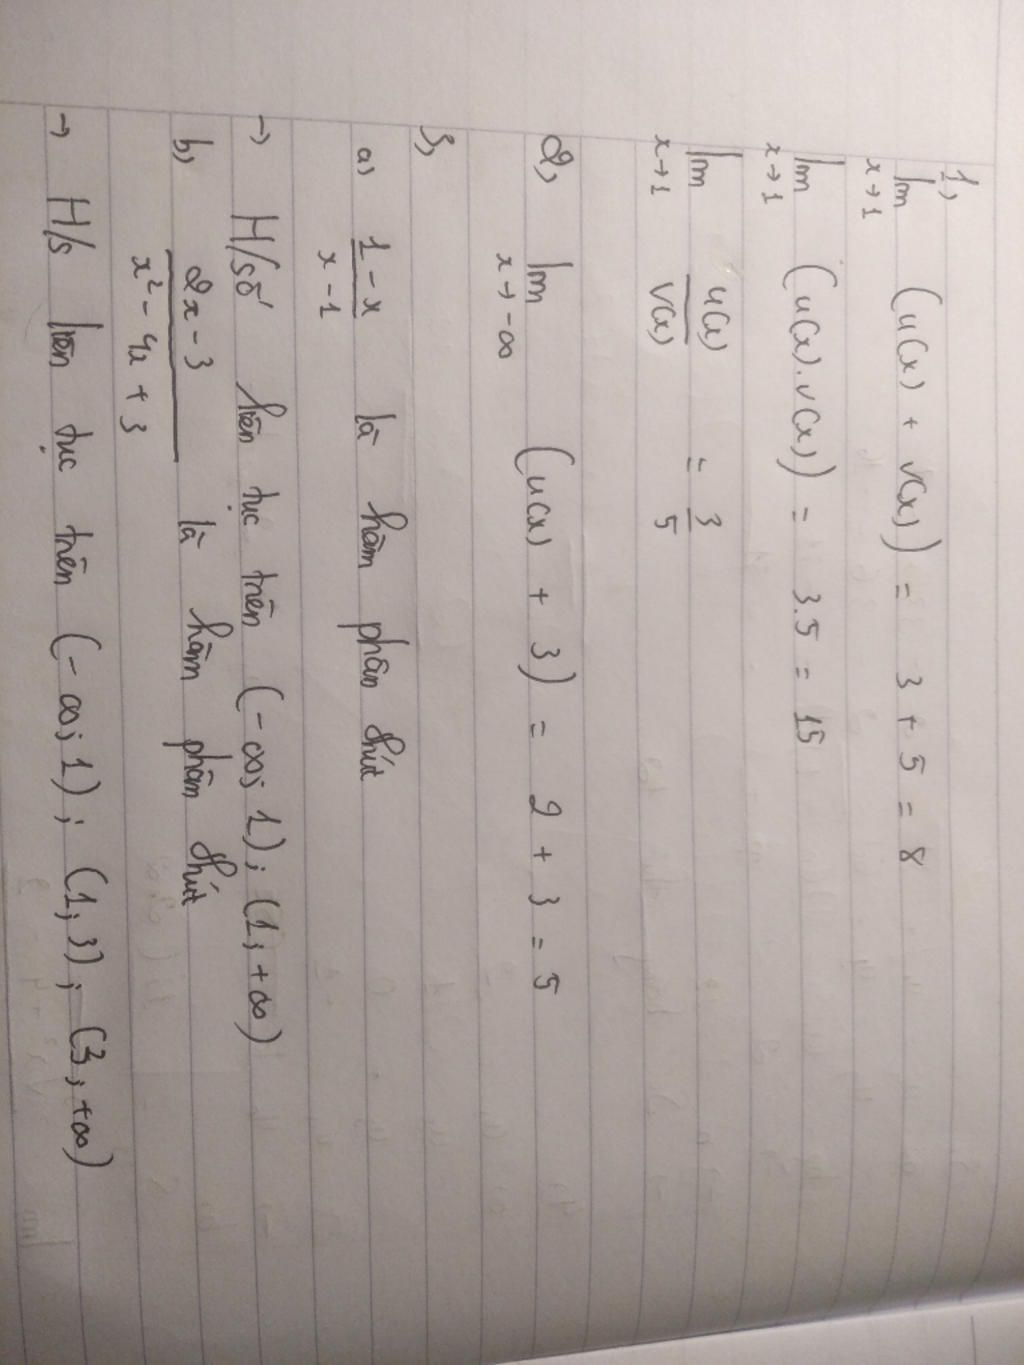 1,
lim (u(x) + v(x)) = 3 + 5 = 8
x→1
lim (u(x).v(x)) = 3.5 = 15
x→1
lim u(x)/v(x) = 3/5
x→1
2, lim (u(x) + 3) = 2 + 3 = 5
x→-∞
3,
a) 1-x/x-1 là hàm phân thức
→ H/số liên tục trên (-∞; 1); (1; +∞)
b, 2x-3/x²-4x+3 là hàm phân thức
→ H/s liên tục trên (-∞; 1); (1; 3); (3; +∞)